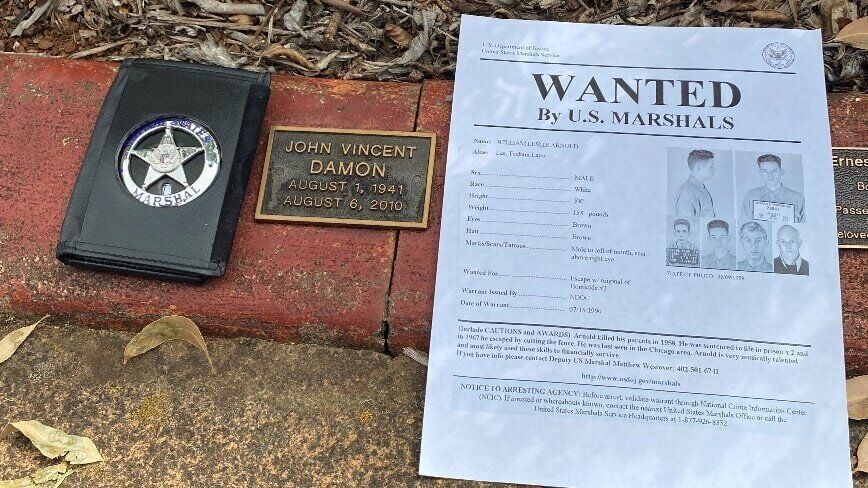 UNITED STATES
MARSHAL
JOHN VINCENT
DAMON
AUGUST 1, 1941
AUGUST 6, 2010
U.S. Department of Justice
United States Marshals Service
WANTED
By U.S. MARSHALS
Name: WILLIAM LESLIE ARNOLD
Alias: Les,
Sex MALE
Race White
Height
Weight 155 pounds
Eyes Brown
Hair Brown
Marks/Scars/Tattoos Mole to left of mouth, scar
above right eye
Wanted For Escape w/ original of
Homicide x2
Warrant Issued By NDOC
Date of Warrant
DATE OF PHOTO:
(Include CAUTIONS and AWARDS) Arnold killed his parents in 1958. He was sentenced to life in prison x 2 and
in 1967 he escaped by cutting the fence. He was last seen in the Chicago area. Arnold is very musically talented
and most likely used these skills to financially survive.
If you have info please contact Deputy US Marshal Matthew Westover: 402-501-6711
http://www.usdoj.gov/marshals
NOTICE TO ARRESTING AGENCY: Before arrest, validate warrant through National Crime Information Center
(NCIC). If arrested or whereabouts known, contact the nearest United States Marshals Office or call the
United States Marshals Service Headquarters at 1-877-926-8332.
Ernes
Passe
belove